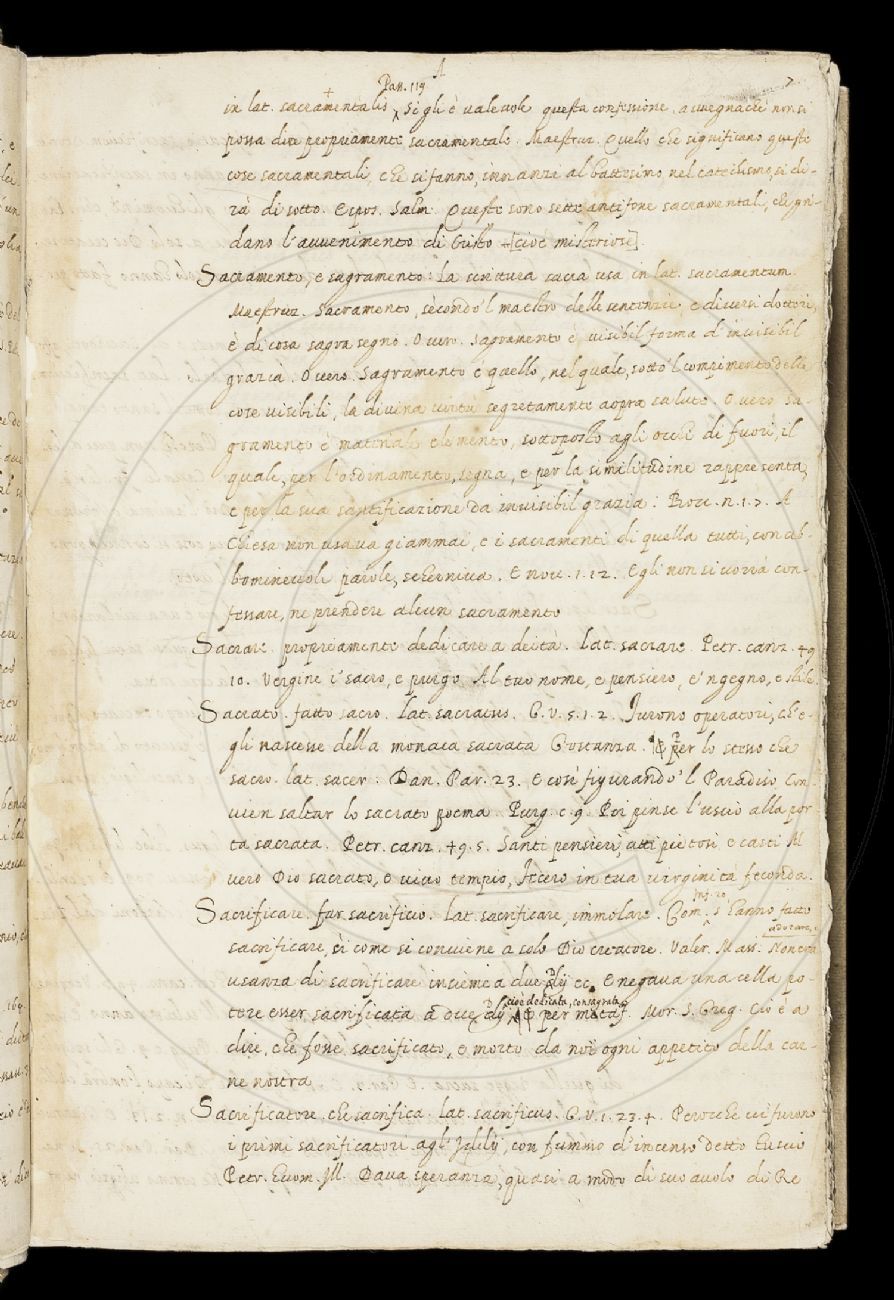 A
Pass. 119
7
in lat. sacramentalis. Si gli è valevole questa confessione, avvegnachè non si
possa dire propriamente sacramentale. Maestruz. Quello che significano queste
cose sacramentali, che si fanno, innanzi al battesimo nel catechismo, si di-
rà di sotto. Espos. Salm. Queste sono sette antifone sacramentali, che gri-
dano l'avvenimento di Cristo [cioè misteriose].
Sacramento, e sagramento: La scrittura sacra usa in lat. sacramentum.
Maestruz. Sacramento, secondo 'l maestro delle sentenzie, e diversi dottori,
è di cosa sagra segno. Overo. Sagramento è visibil forma d'invisibil
grazia. Overo. Sagramento è quello, nel quale, sotto 'l compimento delle
cose visibili, la divina virtù segretamente aopra salute. Overo Sa-
gramento è material elemento, sottoposto agli occhi di fuori, il
quale, per l'ordinamento, segna, e per la similitudine rappresenta,
e per la sua santificazione da invisibil grazia: Bocc. n. 1. 7. A
Chiesa non usava giammai, e i sacramenti di quella tutti, con ab-
bominevoli parole, scherniva. E nov. 1. 12. Egli non si vorrà con-
fessare, ne prendere alcun sacramento
Sacrare. propriamente dedicare a deità. Lat. sacrare. Petr. canz. 49
10. Vergine i' sacro, e purgo Al tuo nome, e pensiero, e 'ngegno, e stile.
Sacrato. fatto sacro. Lat. sacratus. G. V. 5. 1. 2. Furono operatori, ch' e-
gli nascesse della monaca sacrata Gostanza. per lo stesso che
sacro. lat. sacer. Dan. Par. 23. E così figurando 'l Paradiso Con-
vien saltar lo sacrato poema Purg. c. 9. Poi pinse l'uscio alla por-
ta sacrata. Petr. canz. 49. 5. Santi pensieri, atti pietosi e casti Al
vero Dio sacrato, e vivo tempio, Fecero in tua virginità feconda.
Inf. 20
Sacrificare. far sacrificio. Lat. sacrificare, immolare. Com. s' hanno fatto
adorare, e
sacrificare, sì come si conviene a solo Dio creatore. Valer. Mass. Non era
usanza di sacrificare insieme a due dij ec. E negava una cella po-
cioè dedicata, consagrata
tere esser sacrificata a due dij, per metaf. Mor. S. Greg. Cio è a
dire, che fosse sacrificato, e morto da noi ogni appetito della car-
ne nostra
Sacrificatore. che sacrifica. Lat. sacrificus. G. V. 1. 23. 4. Perocchè ivi furono
i primi sacrificatori agl' Iddij, con fummo d'incenso detto Tuscio
Petr. Huom. Ill. Dava speranza, quasi a modo di suo avolo di Re